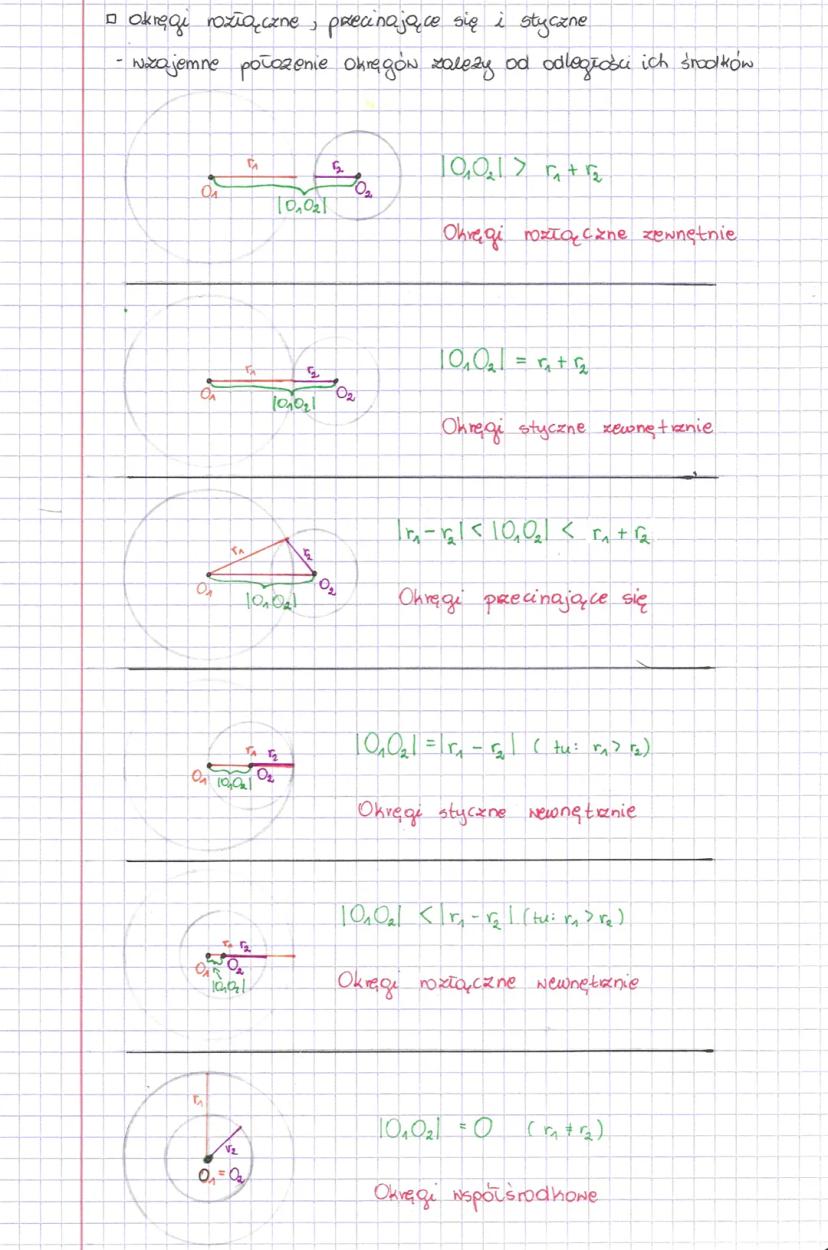 □ Okręgi rozłączne, przecinające się i styczne
- wzajemne położenie okręgów zależy od odległości ich środków
r₁ r₂
O₁ O₂
|O₁O₂|
|O₁O₂| > r₁ + r₂
Okręgi rozłączne zewnętnie
r₁ r₂
O₁ O₂
|O₁O₂|
|O₁O₂| = r₁ + r₂
Okręgi styczne zewnętrznie
r₁ r₂
O₁ O₂
|O₁O₂|
|r₁ - r₂| < |O₁O₂| < r₁ + r₂
Okręgi przecinające się
r₁ r₂
O₁ |O₁O₂| O₂
|O₁O₂| = |r₁ - r₂| (tu: r₁ > r₂)
Okręgi styczne wewnętrznie
r₁ r₂
O₁ O₂
|O₁O₂|
|O₁O₂| < |r₁ - r₂| (tu: r₁ > r₂)
Okręgi rozłączne wewnętrznie
r₁
r₂
O₁ = O₂
|O₁O₂| = 0 (r₁ ≠ r₂)
Okręgi współśrodkowe